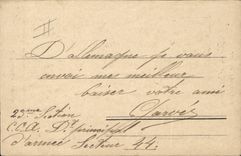 II
D'allemagne je vous
envoi mes meilleur
baiser votre ami
23ème Section
C.O.A. Dt principal
d'armée Secteur 44.